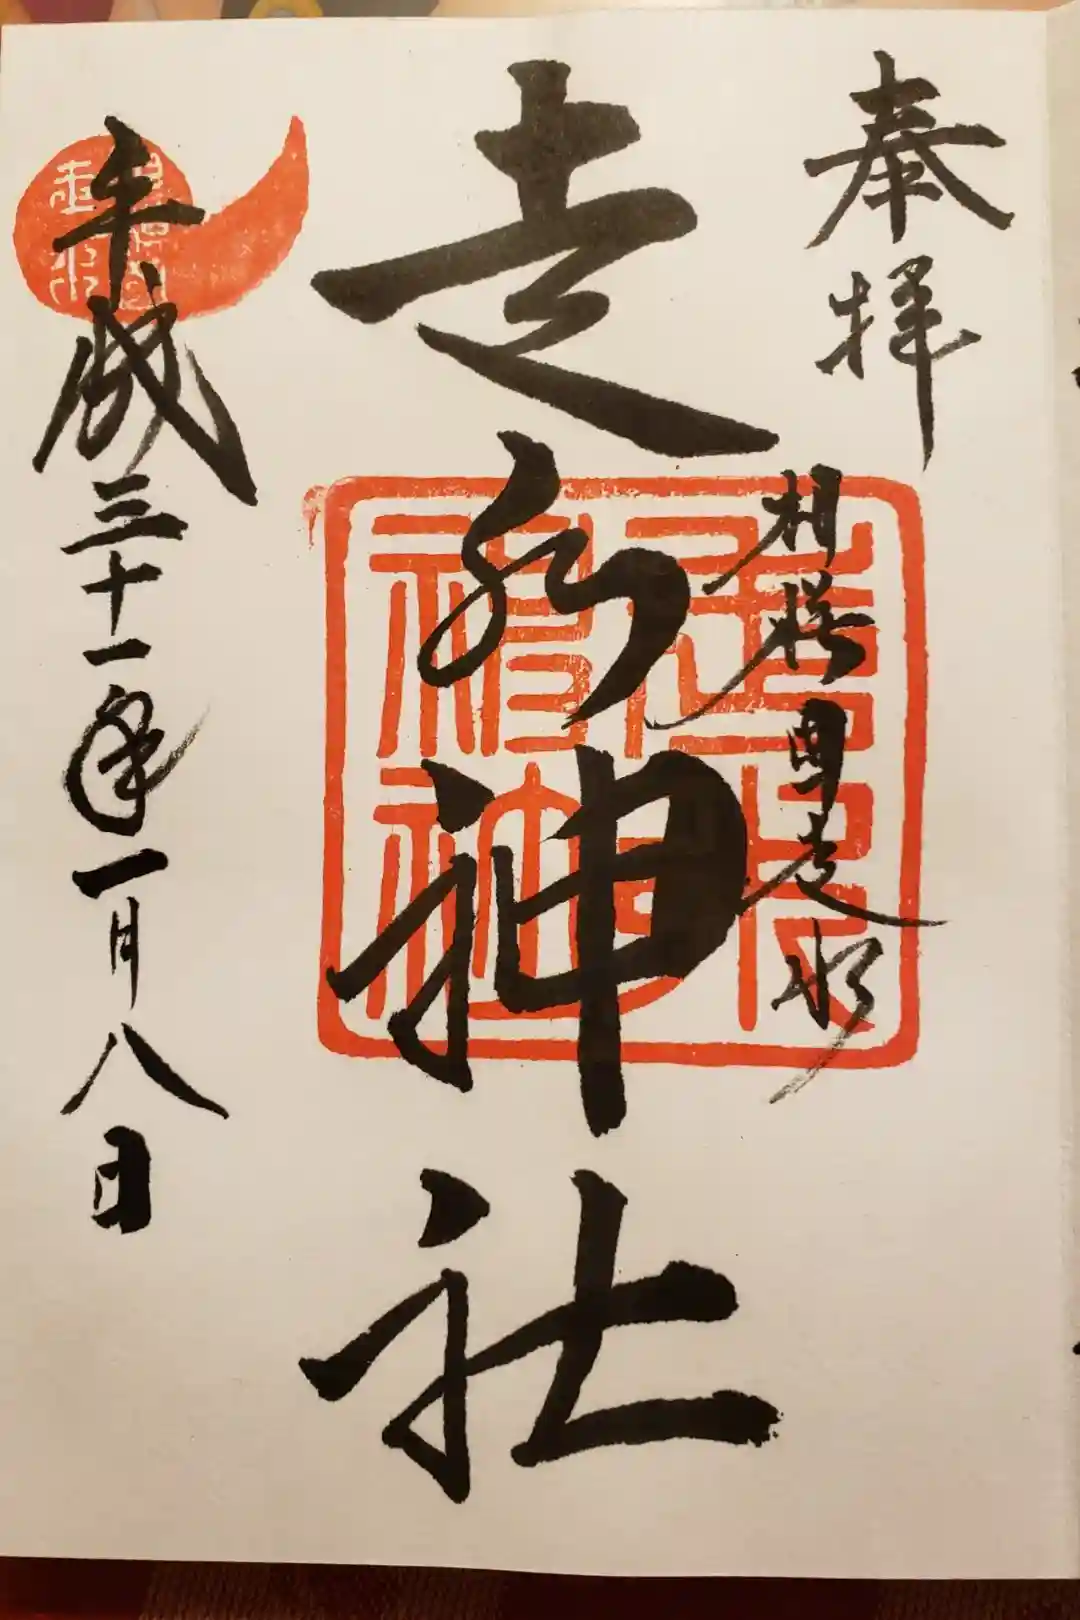 奉拝
相模国走水
走水神社
平成三十一年一月八日